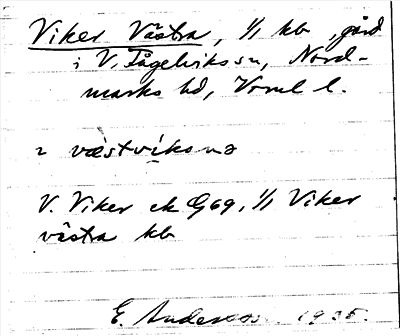 Viker Västra, 1/1 kb, gård
i V. Fågelviks sn, Nord-
marks hd, Vrml l.
västvikənə
V. Viker ek G69, 1/1 Viker
västra kb
E. Andersson 1935.